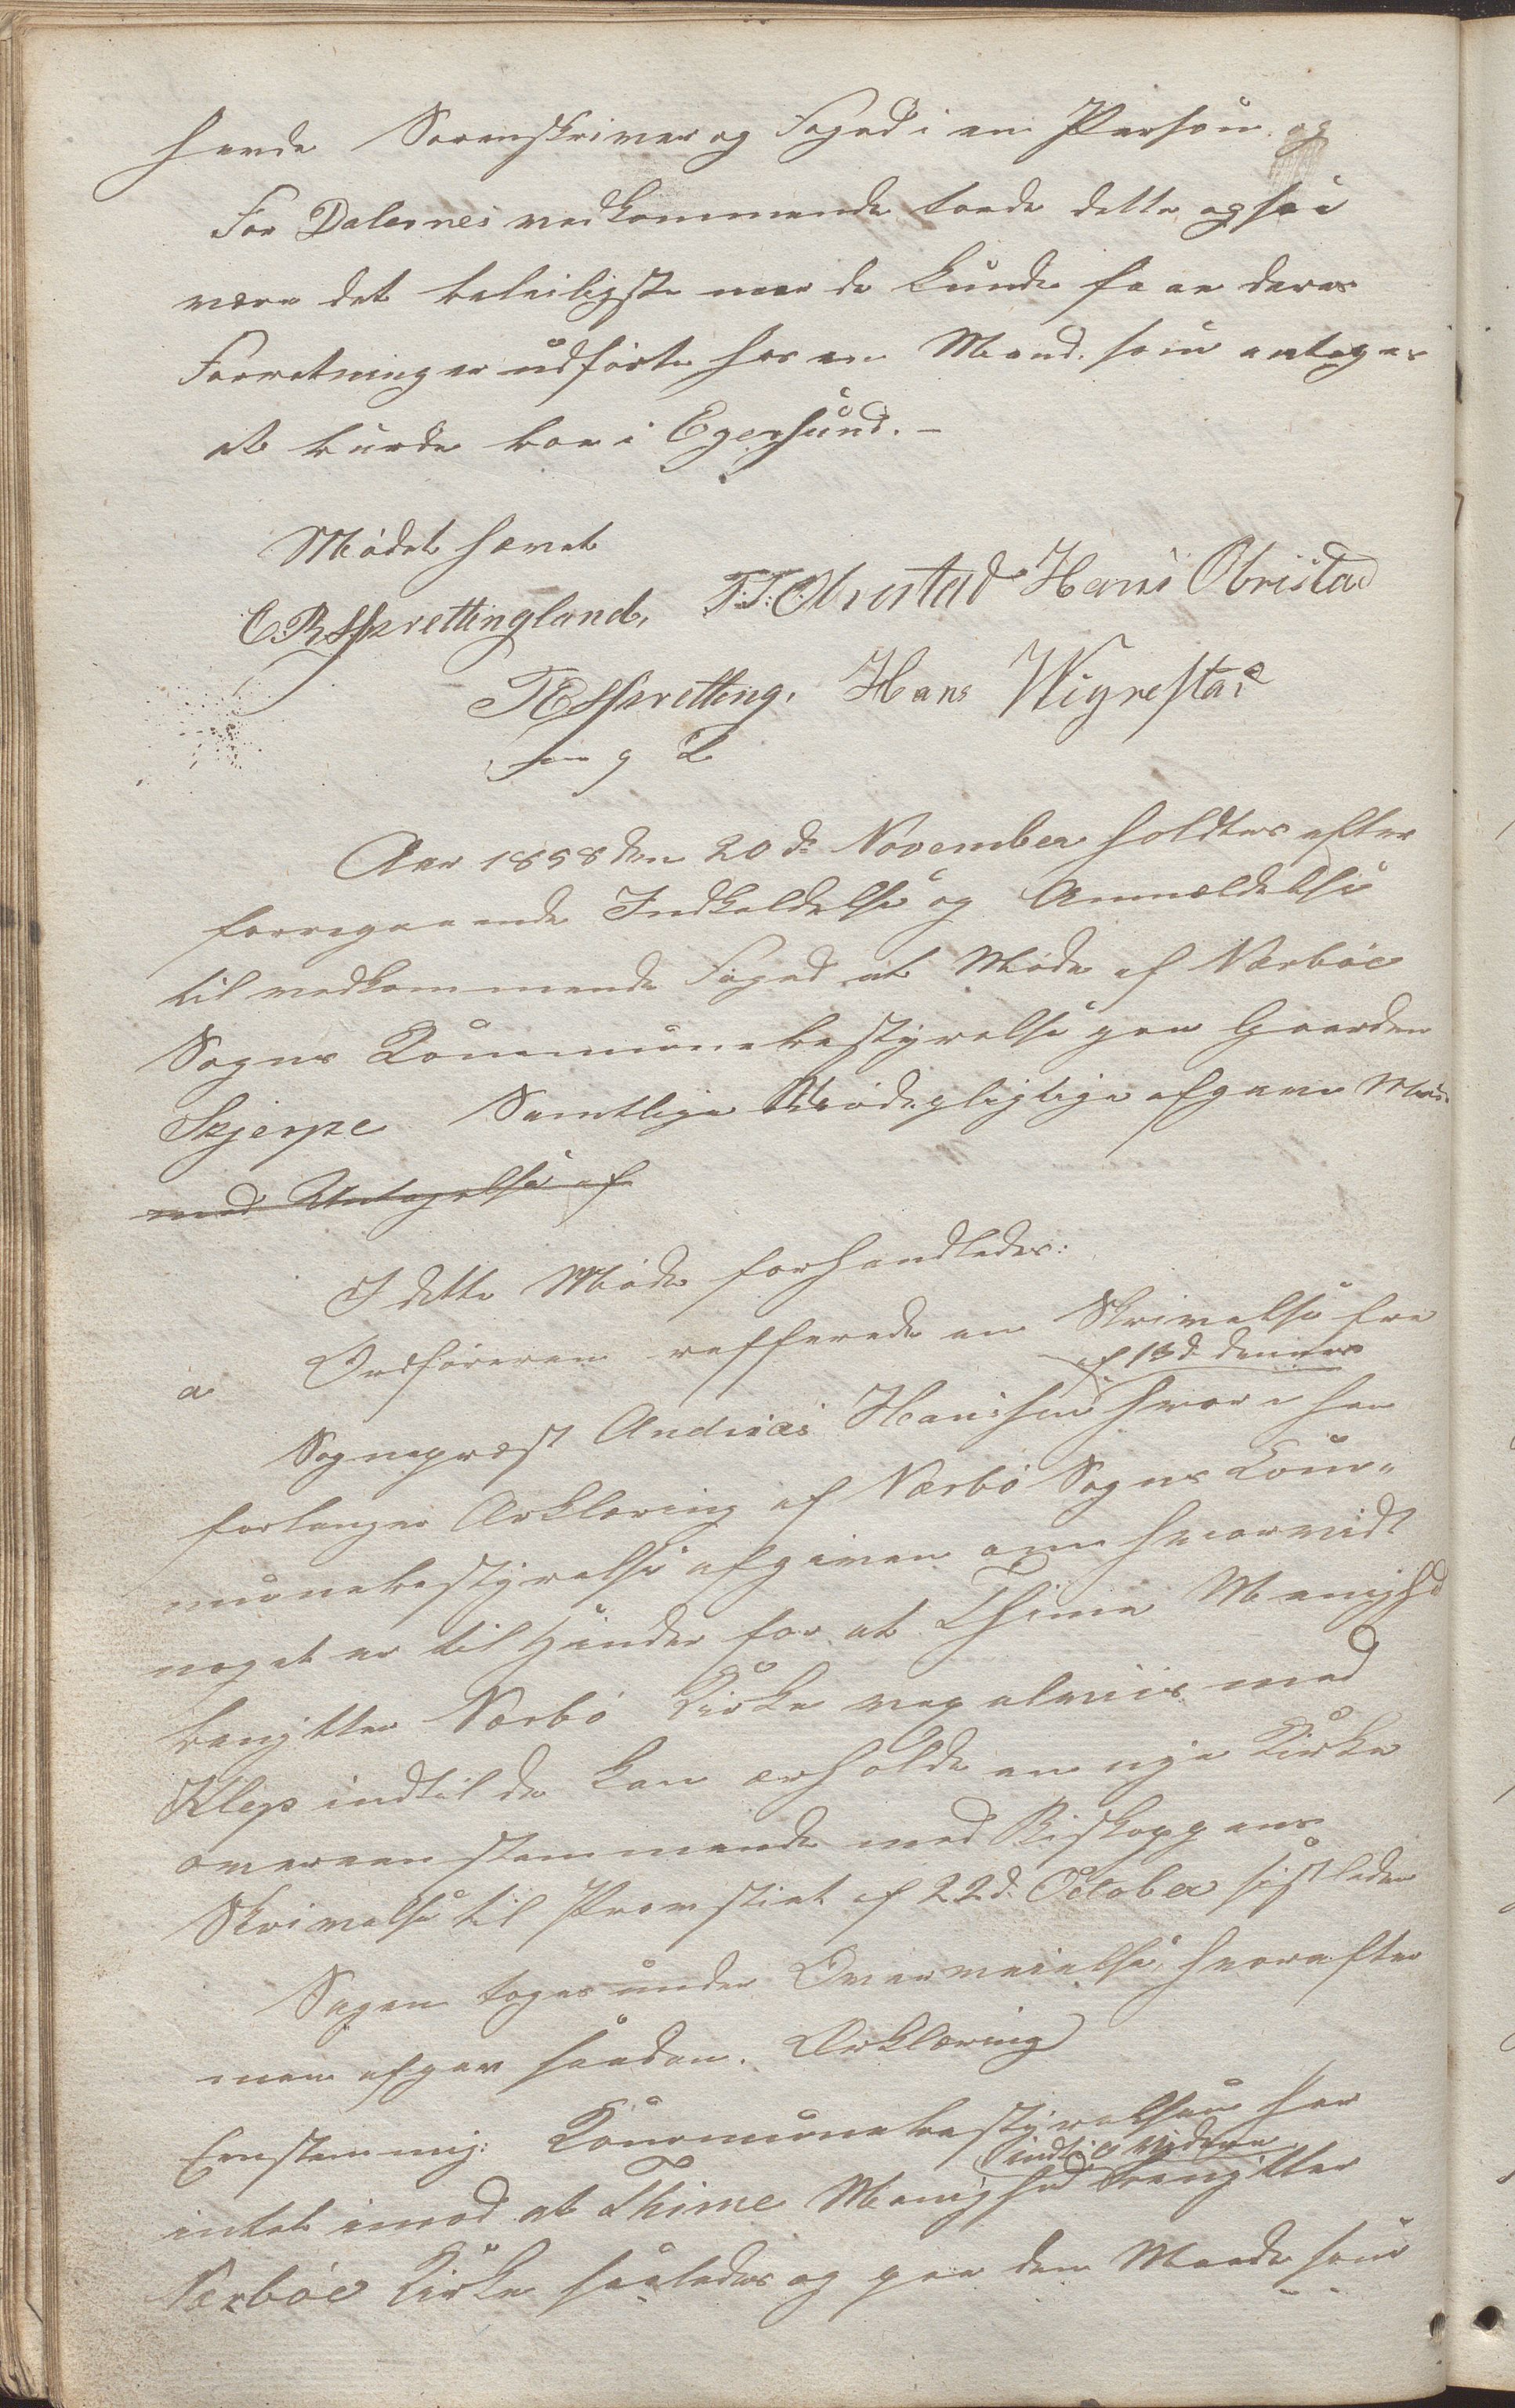 havde Sorenskriver og Foged i en Person og
For Dalernes vedkommende torde dette ogsaa
være det beleiligste naar de kunde faae deres
Forretninger udførte hos en Mand som antages
at burde boe i Egersund. –
Mødet hævet
E. R. Skrettingland, T. T. Obrestad Hans Obristad
T E Skretting, Hans Wigrestad
Aar 1858 den 20de November holdtes efter
forregaaende Indkaldelse og Anmældelse
til vedkommende Foged et Møde af Nærbøe
Sogns Kommunebestyrelse paa Gaarden
Skjerpe Samtlige Mødepligtige afgave Møde
med Untagelse af
I dette Møde forhandledes:
a Ordføreren refferede en Skrivelse fra
af 13d. dennes
Sognepræst Andreas Hansen hvori han
forlanger Ærklæring af Nærbø Sogns Com-
munebestyrelse afgiven om hvorvidt
noget er til Hinder for at Thime Menighed
benytter Nærbø Kirke vexelviis med
Klep indtil de kan ærholde en nye Kirke
overeenstemmende med Biskoppens
Skrivelse til Provstiet af 22d. October sistleden
Sagen toges under Overveielse, hvorefter
man afgav saadan. Ærklæring
Eenstemmig: Kommunebestyrelsen har
indtil Vydere
intet imod at Thime Menighed benytter
Nærbøe Kirke saaledes og paa den Maade som